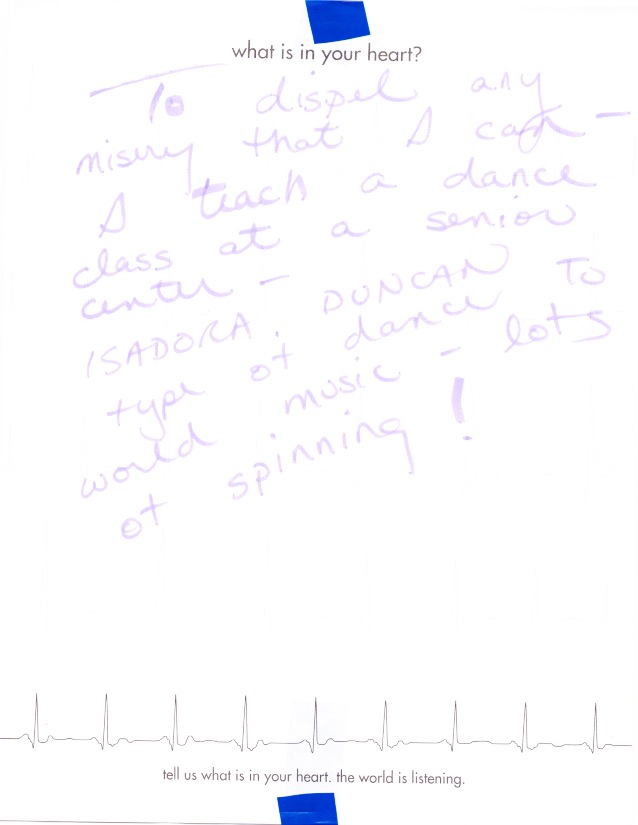 what is in your heart?
To dispel any
misery that I can –
I teach a dance
class at a senior
center –
ISADORA DUNCAN To
type of dance lots
world music –
of spinning!
tell us what is in your heart. the world is listening.